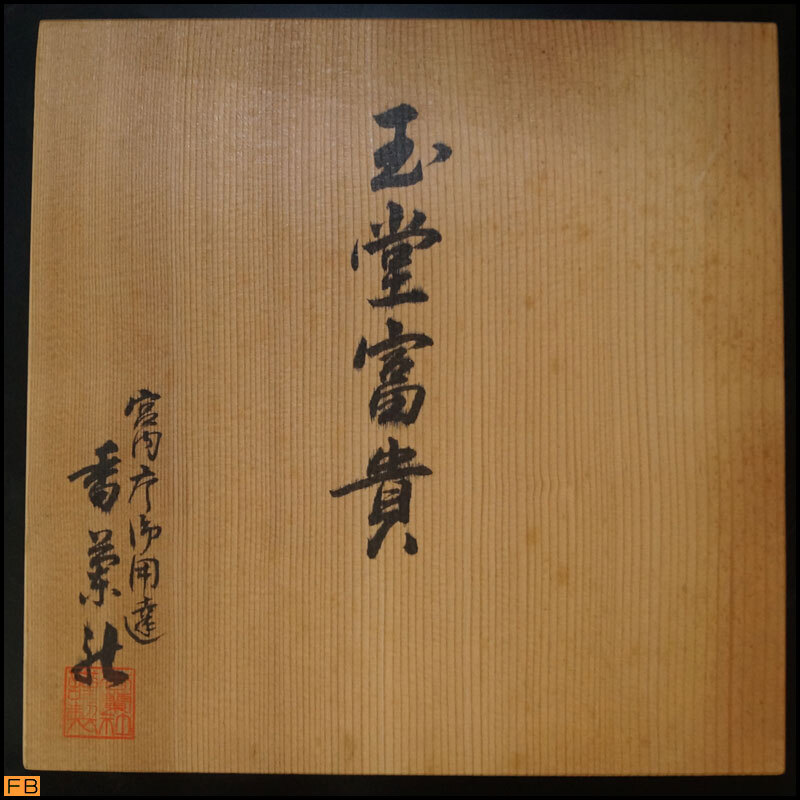 玉堂富貴
宮内庁御用達
香蘭社
FB